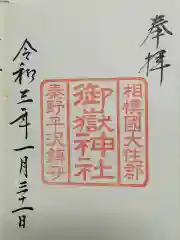 奉拝
相模國大住郡
御嶽神社
秦野平沢鎮守
令和三年一月三十一日